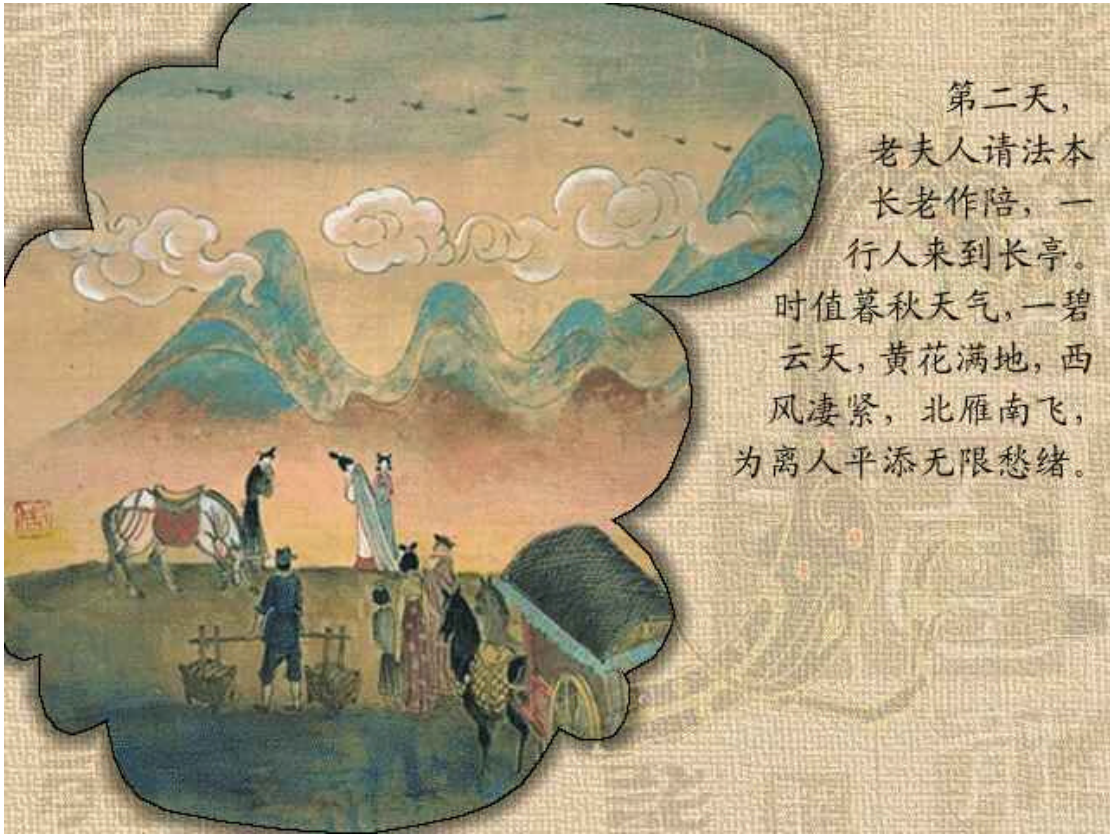 第二天，
老夫人请法本
长老作陪，一
行人来到长亭。
时值暮秋天气，一碧
云天，黄花满地，西
风凄紧，北雁南飞，
为离人平添无限愁绪。